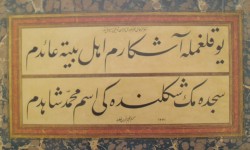 یوقلغمله آشکارم اهل بیته عائدم
سجده مك شکلنده کی اسم محمد شاهدم